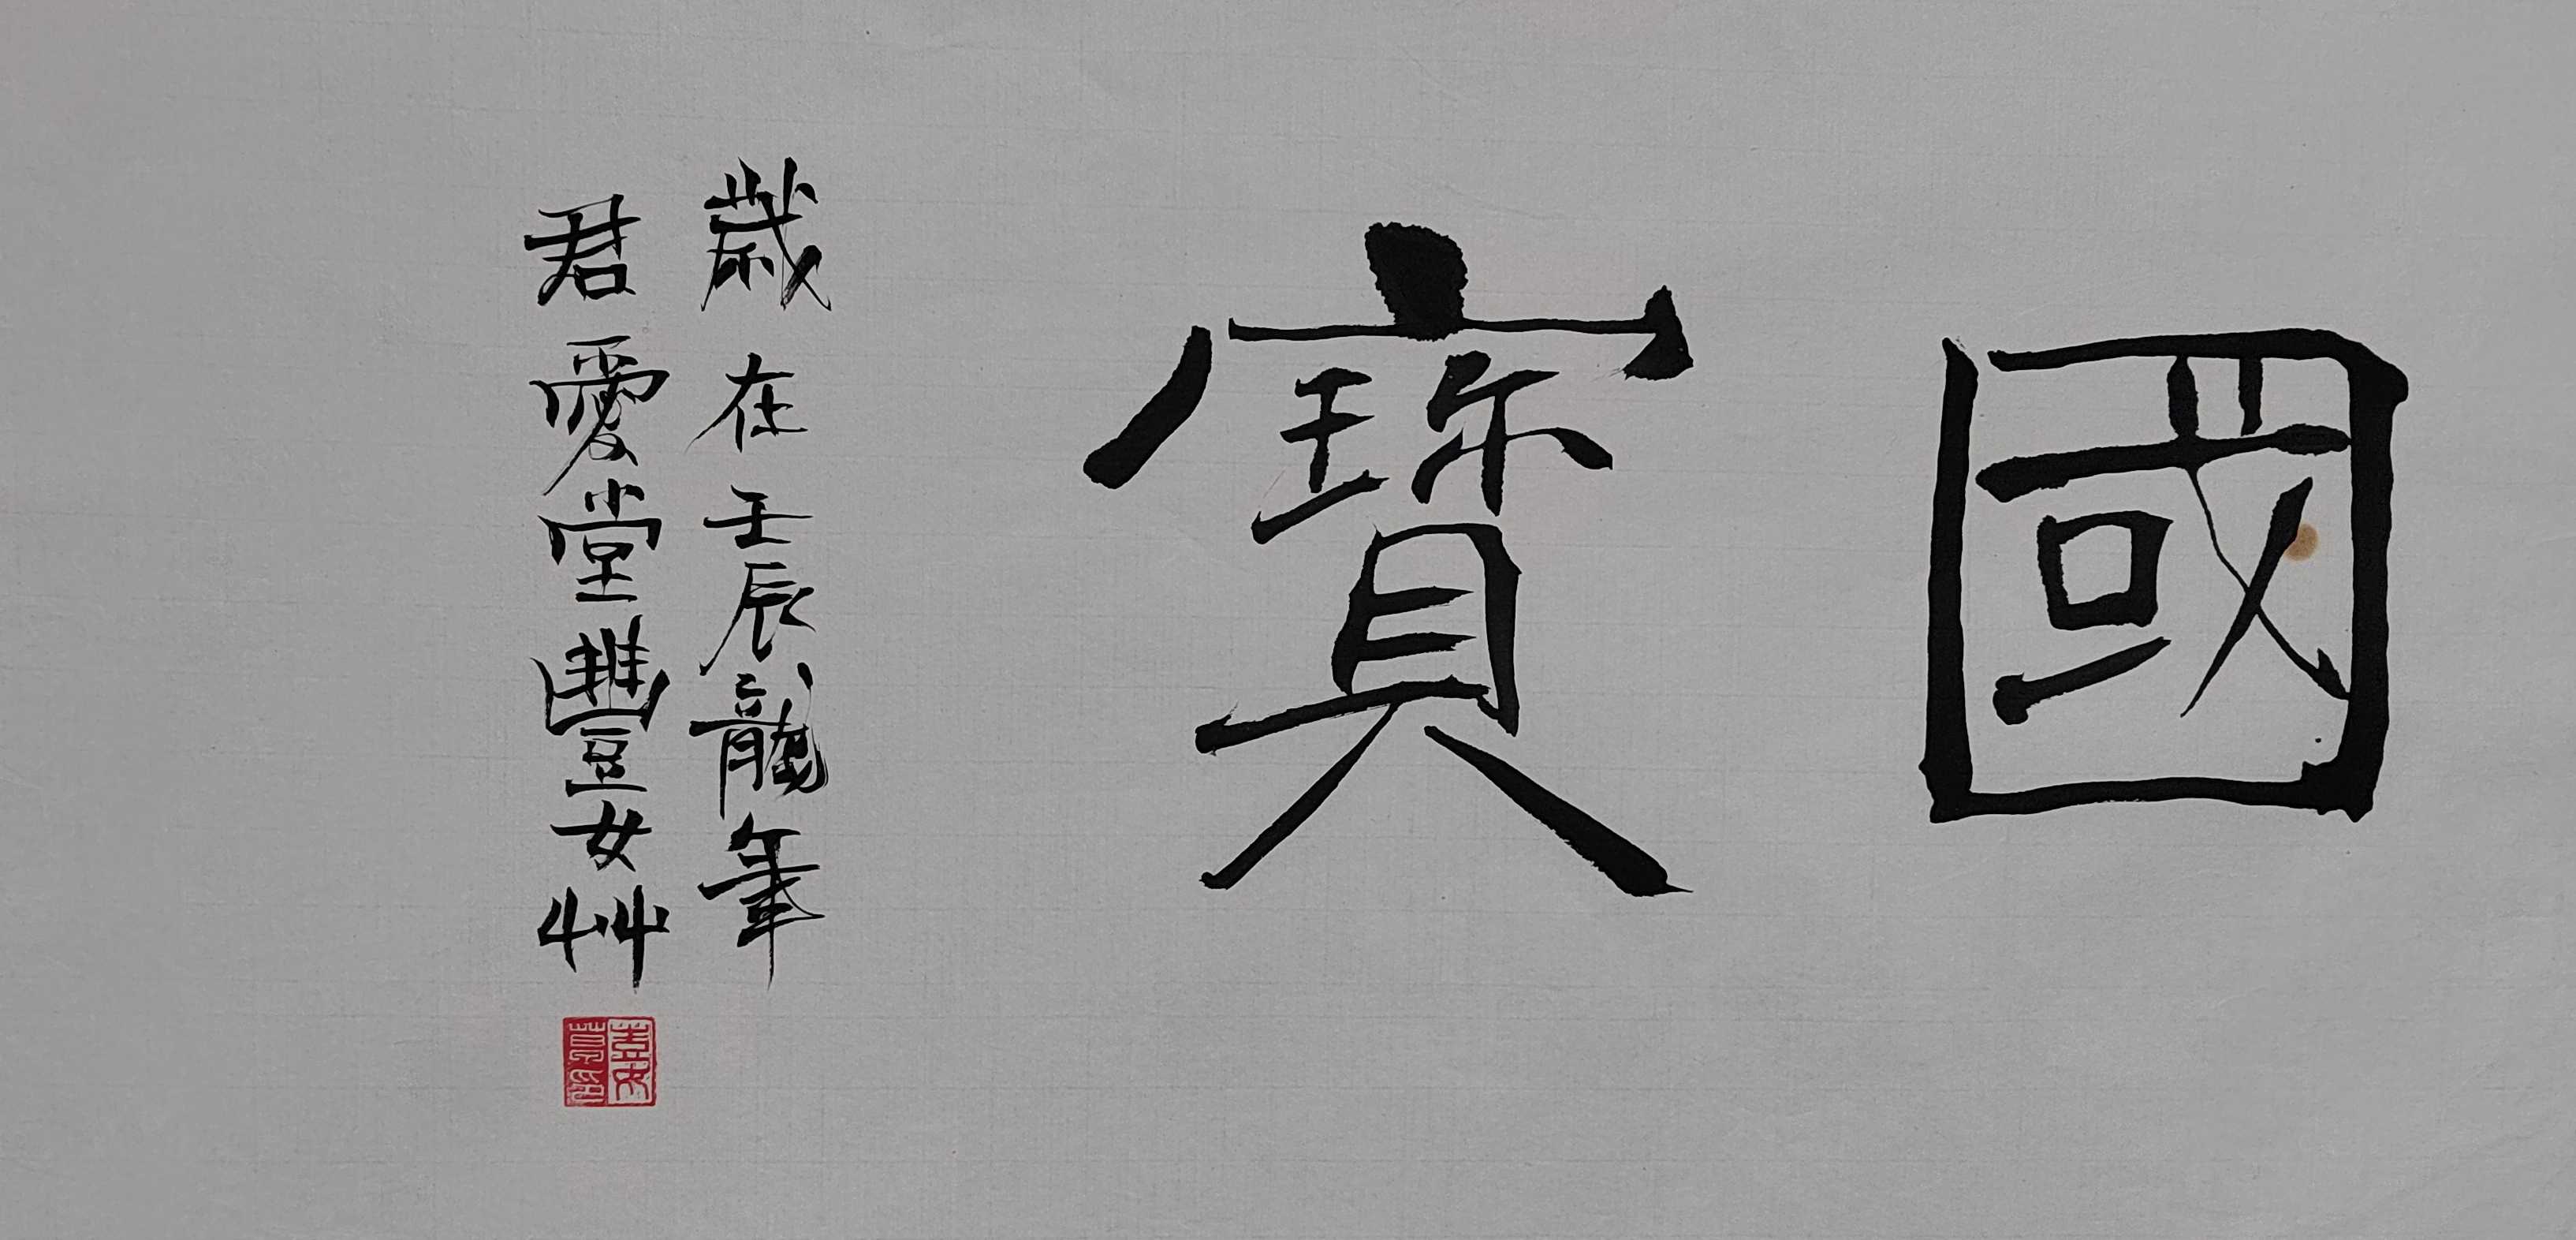 國寳
歲在壬辰龍年
君愛堂豐女艸